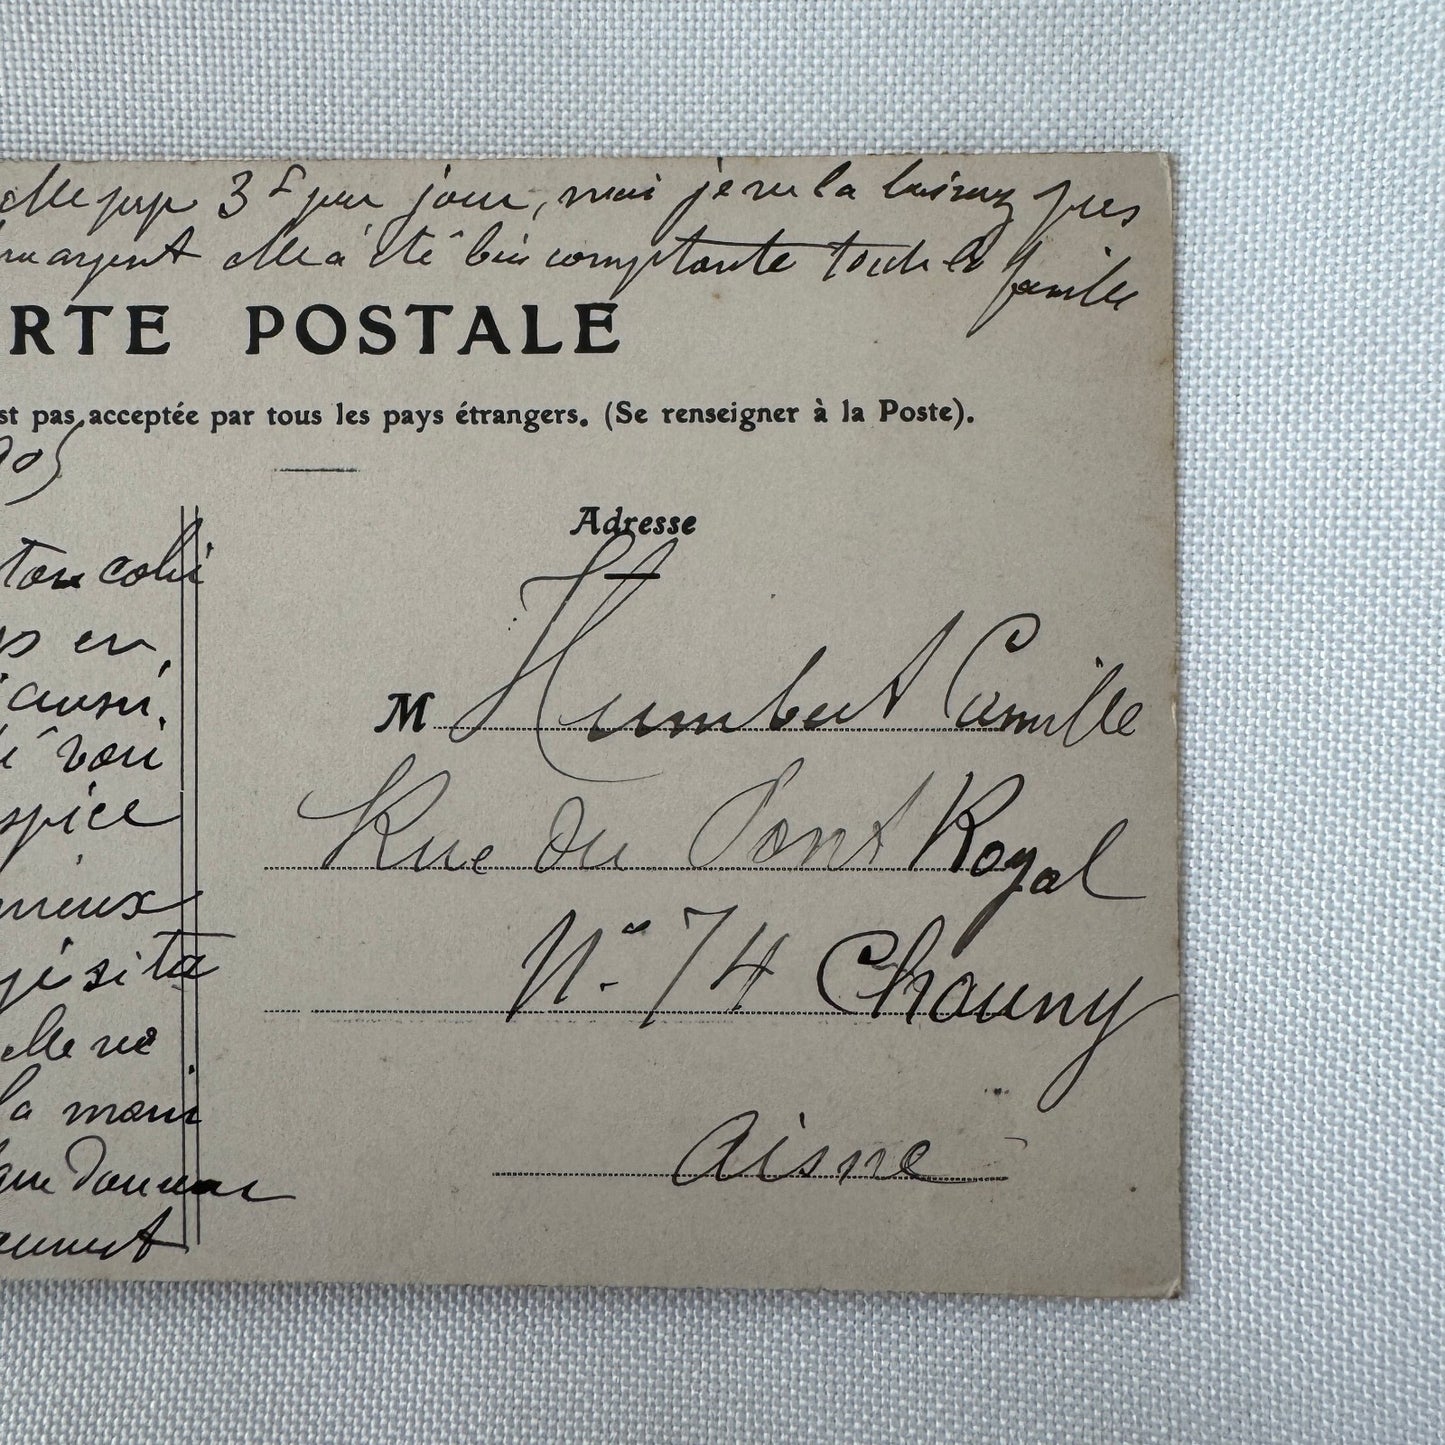 elle paye 3f par jour, mais je ne la laisserez pas
argent elle a été bien comptante toute la famille
RTE POSTALE
st pas acceptée par tous les pays étrangers. (Se renseigner à la Poste).
905
Adresse
ton colis
en
aussi,
voir
spice
mieux
elle ne
la main
M Humbert Camille
Rue du Pont Royal
No 74 Chauny
Aisne